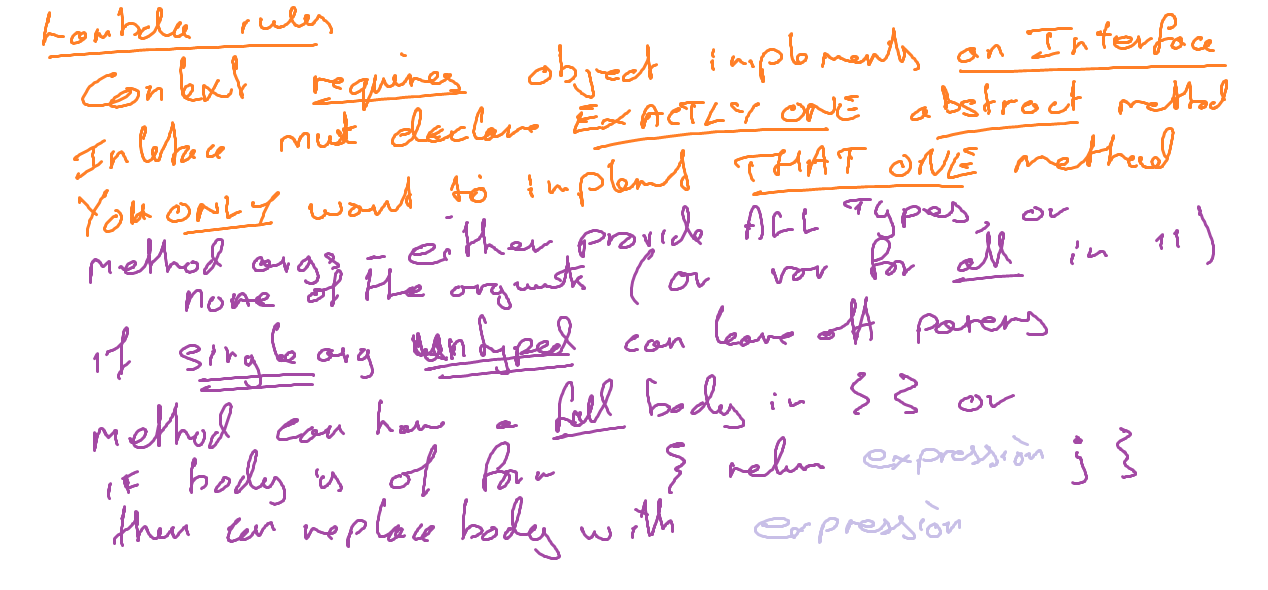 Lambda rules
Context requires object implements an Interface
Interface must declare EXACTLY ONE abstract method
You ONLY want to implement THAT ONE method
method args - either provide ALL Types, or
none of the arguments (or var for all in 11)
if single arg untyped can leave off parens
method can have a full body in { } or
if body is of form { return expression ; }
then can replace body with expression